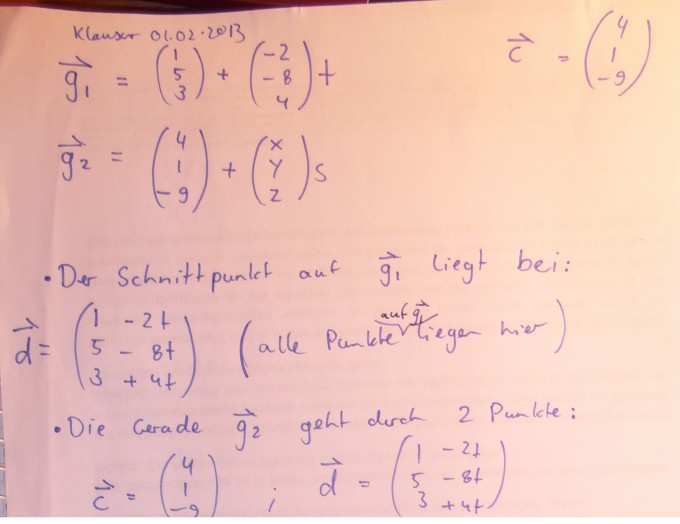 Klausur 01.02.2013
g₁ = (1 5 3) + (-2 -8 4) t
c = (4 1 -9)
g₂ = (4 1 -9) + (x y z) s
• Der Schnittpunkt auf g₁ liegt bei:
d = (1 - 2t 5 - 8t 3 + 4t) (alle Punkte auf g₁ liegen hier)
• Die Gerade g₂ geht durch 2 Punkte:
c = (4 1 -9) ; d = (1 - 2t 5 - 8t 3 + 4t)